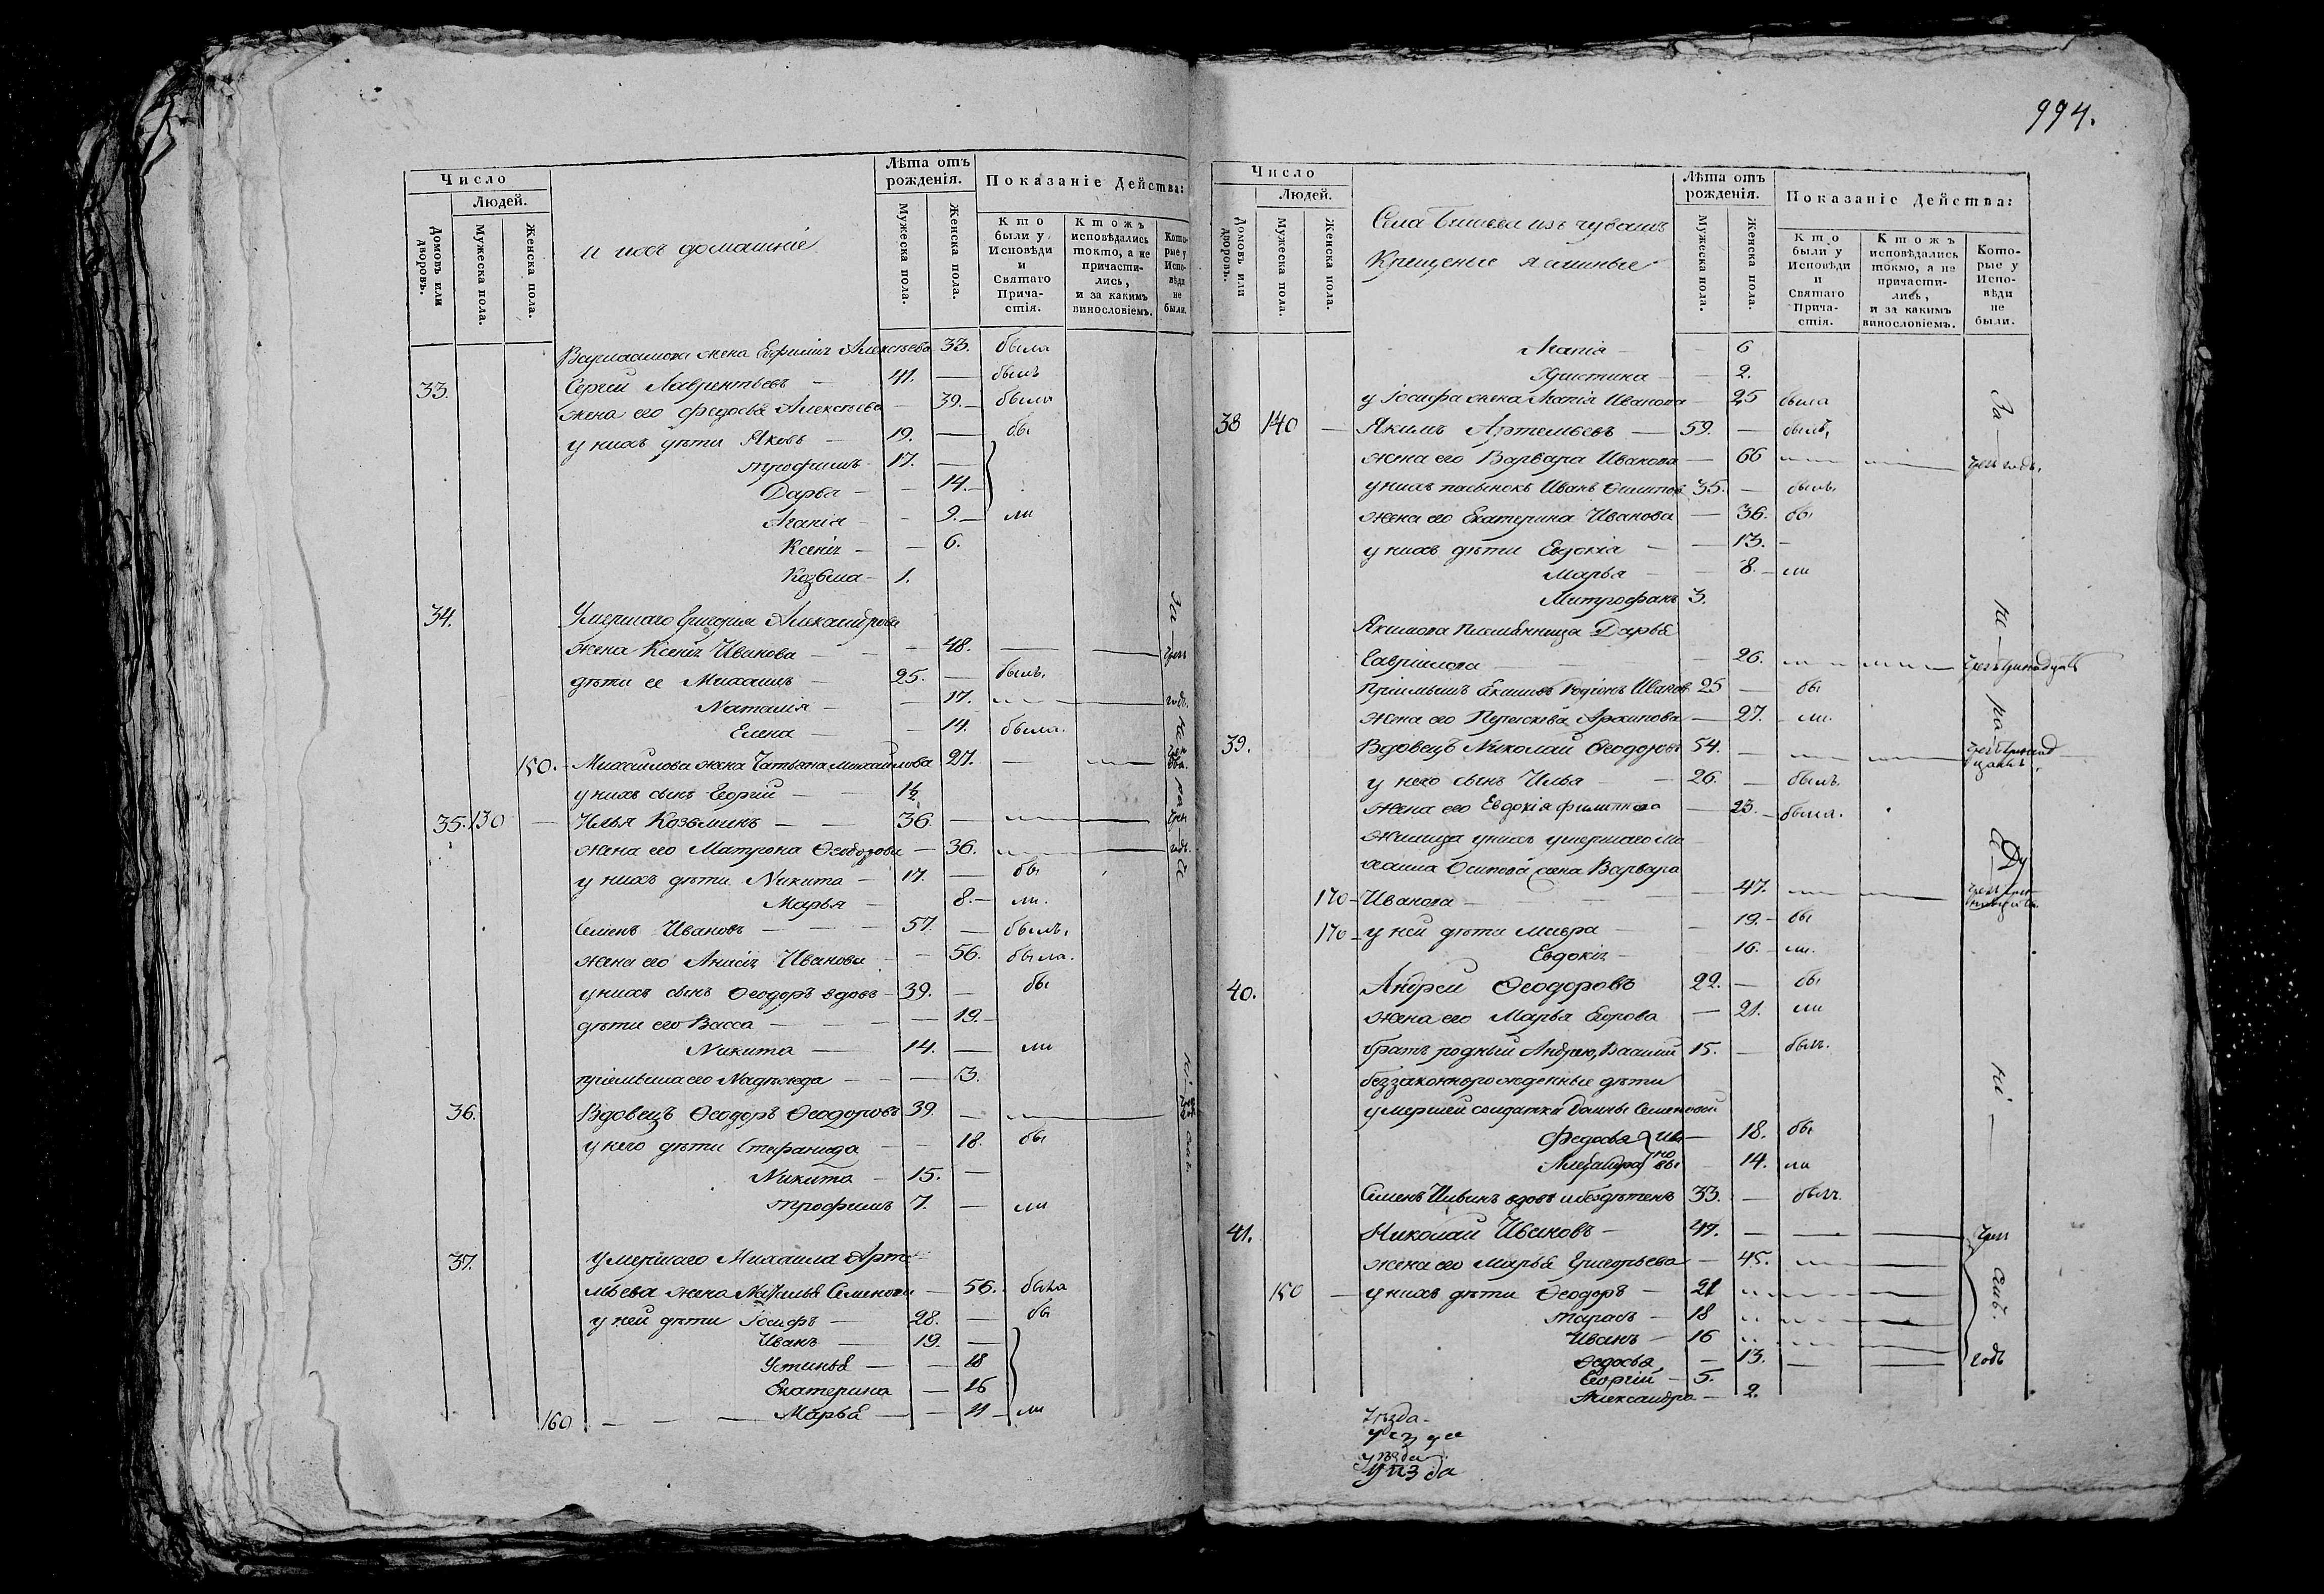 994.
Число
Людей.
Домовъ или дворовъ.
Мужеска пола.
Женска пола.
и ихъ домашнiе
Лѣта отъ рожденія.
Мужеска пола.
Женска пола.
Показаніе Дѣйства:
Кто были у Исповѣди и Святаго Прича-стія.
Ктожъ исповѣдались токмо, а не причасти-лись, и за какимъ винословіемъ.
Кото-рые у Испо-вѣди не были.
жена Алексѣева 33. была
33. Сергей Лаврентьевъ — 41. — былъ
жена его Федосья Алексѣева — 39. — была
у нихъ дѣти Яковъ — 19. — бы
Трофимъ — 17. —
Дарья — — 14. —
Агапiя — — 9. — ли
Ксенiя — — 6.
Козьма — 1.
34. Умершаго Григорiя Александрова
жена Ксенiя Иванова — — 48. — —
дѣти ее Михаилъ — 25. — былъ.
Наталiя — — 17. — —
Елена — — 14. была.
150. — Михаилова жена Татьяна Михайлова 27. — —
у нихъ сынъ Георгiй — — 1½
35. 130 — Илья Козьминъ — — 36. — —
жена его Матрона Ѳеодорова — 36. — —
у нихъ дѣти Никита — 17. — бы
Марья — 8. — ли.
Семенъ Ивановъ — — — 57. — былъ.
жена его Анисiя Иванова — — 56. была.
у нихъ сынъ Ѳеодоръ вдовъ — 39. — бы
дѣти его Васса — — — — 19. —
Никита — 14. — ли
прiемыша его Надѣжда — — — 3.
36. Вдовецъ Ѳеодоръ Ѳеодоровъ 39. — —
у него дѣти Стефанида — — 18. бы
Никита — 15. —
Трофимъ 7. — ли
37. Умершаго Михаила Арте
мьева жена Наталья Семенова — 56. была
у ней дѣти Iосифъ — 28. — бы
Иванъ — 19. —
Устинья — — 18
Екатерина — 16
160 — — — Марья — — 11 — ли
Число
Людей.
Домовъ или дворовъ.
Мужеска пола.
Женска пола.
Села изъ чувашъ
Крещеные
Лѣта отъ рожденія.
Мужеска пола.
Женска пола.
Показаніе Дѣйства:
Кто были у Исповѣди и Святаго Прича-стія.
Ктожъ исповѣдались токмо, а не причасти-лись, и за какимъ винословіемъ.
Кото-рые у Испо-вѣди не были.
Агапiя — — 6
Христина — — 2.
у Iосифа жена Агапiя Иванова — 25 была
38 140 — Якимъ Артемьевъ — 59. — былъ,
жена его Варвара Иванова — 66 — —
у нихъ пасынокъ Иванъ Осиповъ 35. — былъ.
жена его Екатерина Иванова — 36. бы
у нихъ дѣти Евдокiя — — 13. —
Марья — — 8. — ли
Митрофанъ 3.
Якимова племянница Дарья
Гаврилова — — 26. — —
прiимышъ Родiонъ Иванов 25 — бы
жена его Архипова — 27. — ли.
39. Вдовецъ Николай Ѳеодоровъ 54. — —
у него сынъ Илья — — 26. — былъ.
жена его Евдокiя Филиппова — 23. — была.
у нихъ умершаго Ми
хаила Осипова жена Варвара
170 — Иванова — — 47. — —
170 — у ней дѣти Мавра — — 19. — бы
Евдокiя — 16. — ли.
40. Андрей Ѳеодоровъ 22. — бы
жена его Марья Егорова — 21. ли
братъ родный Андрею, Василий 15. — былъ.
беззаконнорожденные дѣти
умершей солдатки Семеновой
Федосья — 18. бы
Александра — 14. ли
Семенъ вдовъ и бездѣтенъ 33. — былъ.
41. Николай Ивановъ — 47. — — —
жена его Марья Григорьева — 45. — —
150 — у нихъ дѣти Ѳеодоръ — 21 — —
Тарасъ — 18 — —
Иванъ — 16 — —
Ѳедосья — 13. — — годъ
Георгiй — 5.
Александра — 2.
уѣзда
уѣзда